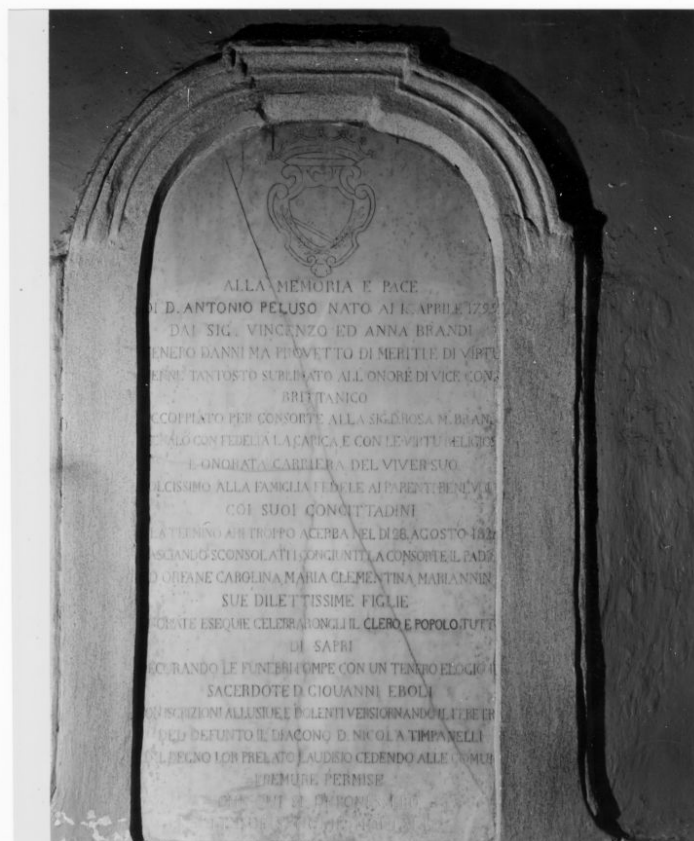 ALLA MEMORIA E PACE
DI D. ANTONIO PELUSO NATO AI 1. APRILE 1795
DAI SIG. VINCENZO ED ANNA BRANDI
TENERO DANNI MA PROVETTO DI MERITI E DI VIRTU
VENNE TANTOSTO SUBLIMATO ALL ONORE DI VICE CON
BRITTANICO
CCOPPIATO PER CONSORTE ALLA SIG. D. ROSA M. BRAN
CON FEDELTA LA CARICA E CON LE VIRTU RELIGIOS
L ONORATA CARRIERA DEL VIVER SUO
OLCISSIMO ALLA FAMIGLIA FEDELE AI PARENTI BENEVOL
COI SUOI CONCITTADINI
LA TERMINO AHI TROPPO ACERBA NEL DI 28. AGOSTO
ASCIANDO SCONSOLATI I CONGIUNTI LA CONSORTE IL PADR
ORFANE CAROLINA MARIA CLEMENTINA MARIANNIN
SUE DILETTISSIME FIGLIE
ESEQUIE CELEBRARONGLI IL CLERO E POPOLO TUTT
DI SAPRI
ECORANDO LE FUNEBRI POMPE CON UN TENERO ELOGIO
SACERDOTE D. GIOUANNI EBOLI
ON ISCRIZIONI ALLUSIUE E DOLENTI VERSI ORNANDO IL FERETR
DEL DEFUNTO IL DIACONO D. NICOLA TIMPANELLI
DEGNO LOR PRELATO LAUDISIO CEDENDO ALLE COMUN
PREMURE PERMISE